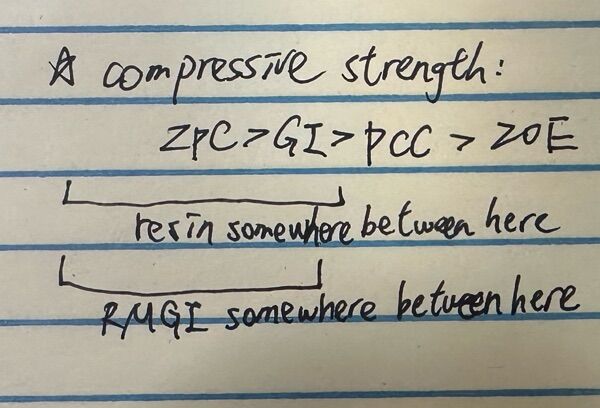 ☆ compressive strength:
ZPC > GI > PCC > ZOE
resin somewhere between here
RMGI somewhere between here